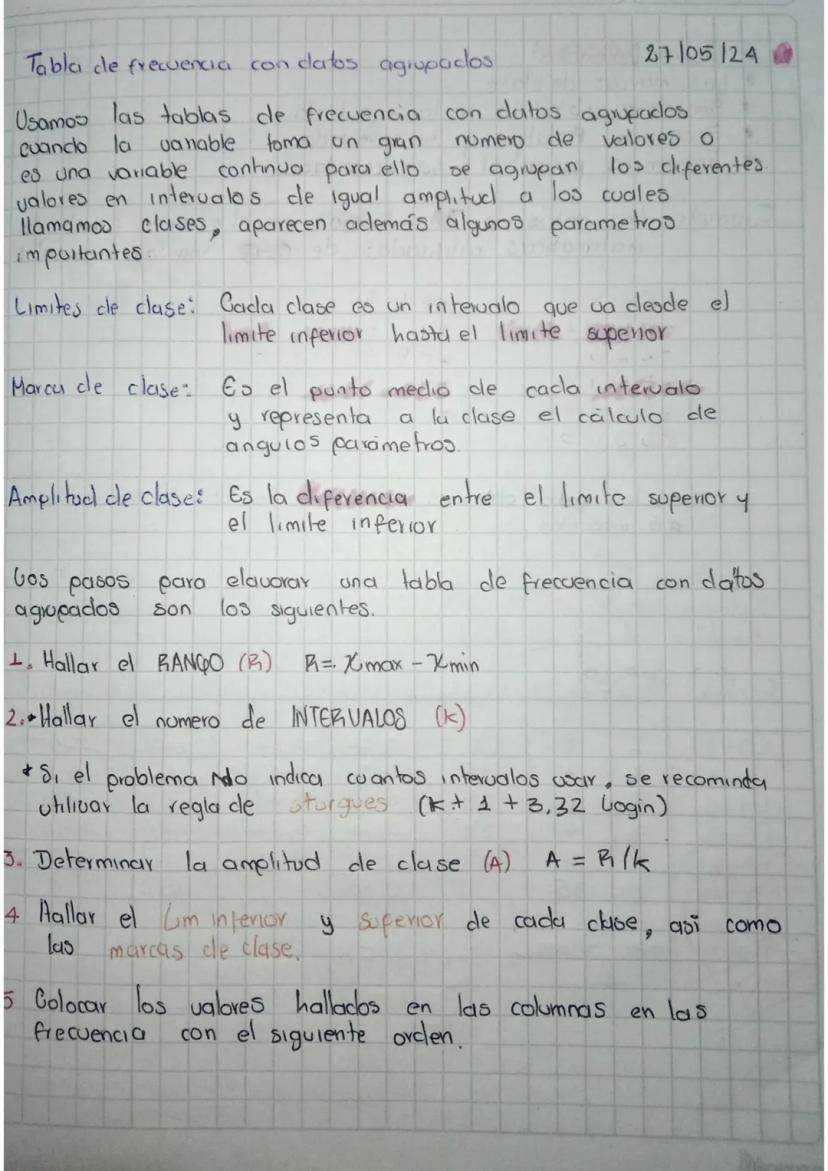 Tabla de frecuencia con datos agrupados 27/05/24
Usamos las tablas de frecuencia con datos agrupados
cuando la variable toma un gran numero de valores o
es una variable continuo para ello se agrupan los diferentes
valores en intervalos de igual amplitud a los cuales
llamamos clases, aparecen además algunos parametros
importantes.
Limites de clase: Cada clase es un intervalo que va desde el
limite inferior hasta el limite superior
Marca de clase: Es el punto medio de cada intervalo
y representa a la clase el cálculo de
angulos parámetros.
Amplitud de clase: Es la diferencia entre el limite superior y
el limite inferior
Los pasos para elavorar una tabla de frecuencia con datos
agrupados son los siguientes.
1. Hallar el RANGO (R) R = Xmax - Xmin
2. Hallar el numero de INTERVALOS (k)
* Si el problema No indica cuantos intervalos usar, se recominda
utilizar la regla de sturgues (k + 1 + 3,32 Login)
3. Determinar la amplitud de clase (A) A = R/k
4 Hallar el Lim inferior y superior de cada clase, asi como
las marcas de clase.
5 Colocar los valores hallados en las columnas en las
frecuencia con el siguiente orden.